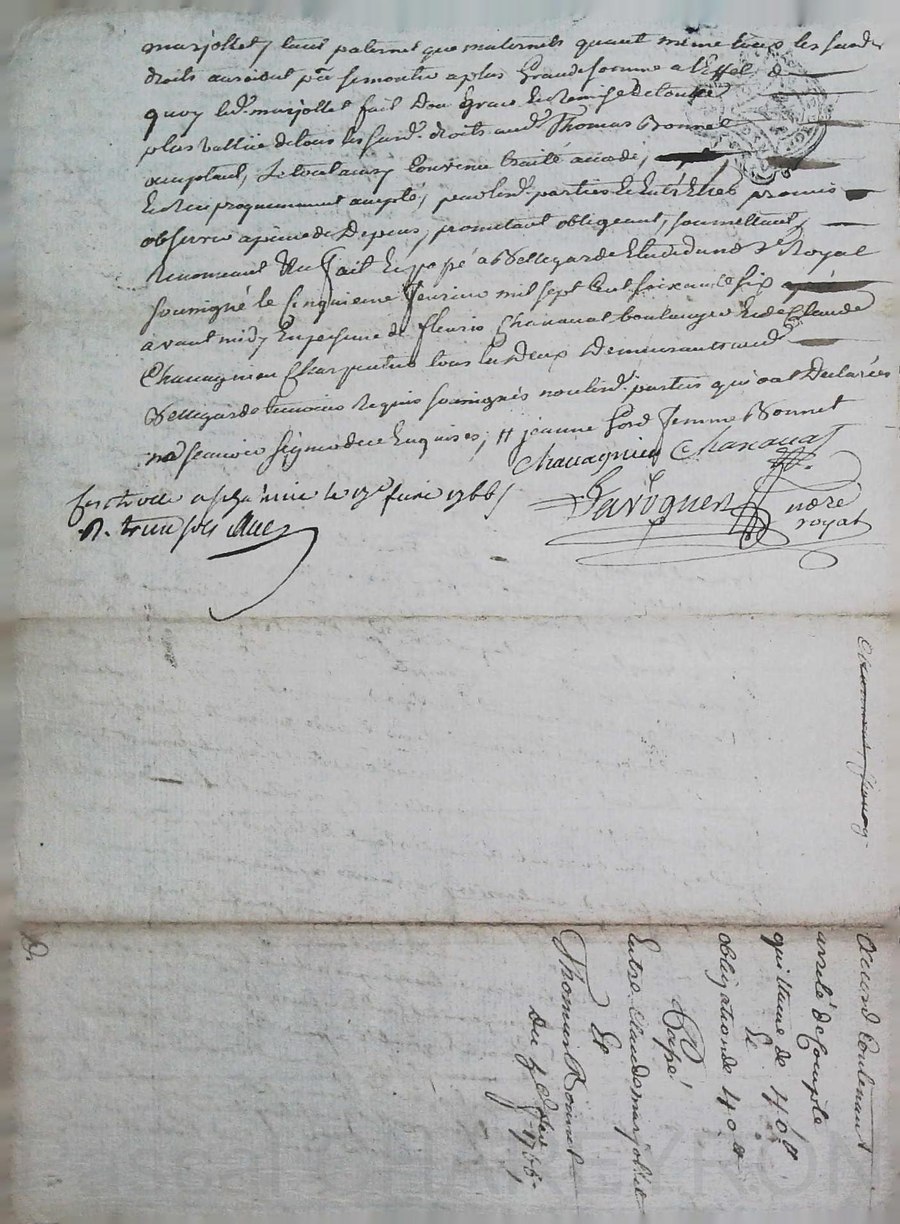 marjollet, tant paternel que maternels quant même tous les susd.
droits auroient pu se monter a plus Grande somme a l'Effet de
quoy led. marjollet fait Don Grace Et Remise de toutte
plus vallüe de tous les susd. droits aud. Thomas Bonnet
acceptant, le tout ainsy Convenu traité accordé,
Et Reciproquement accepté, par lesd. parties Et Entr'Elles promis
observer a peine de Depens, promettant obligeant, soumettant,
Renonceant &a fait Et passé a Bellegarde Etude dud. Royal
soussigné le cinquieme feurier mil sept Cent soixante six
avant midy En presence de fleurie Chanavat boulanger Et de Claude
Chavagnieu Charpentier tous les Deux Demeurants aud.
Bellegarde temoins Requis soussignés non lesd. parties qui ont Declarées
ne scavoir signer de ce Enquises, jeanne femme Bonnet
Chavagnieu Chanavat
Controllé a le 17e feurier 1766
R.
notre
royal
Accord Contenant
arresté de Compte
quittance de 40#
Et
obligation de 40#
Expé
Entre Claude marjollet
Et
Thomas Bonnet
Du 5 feurier 1766
CHAREYRON